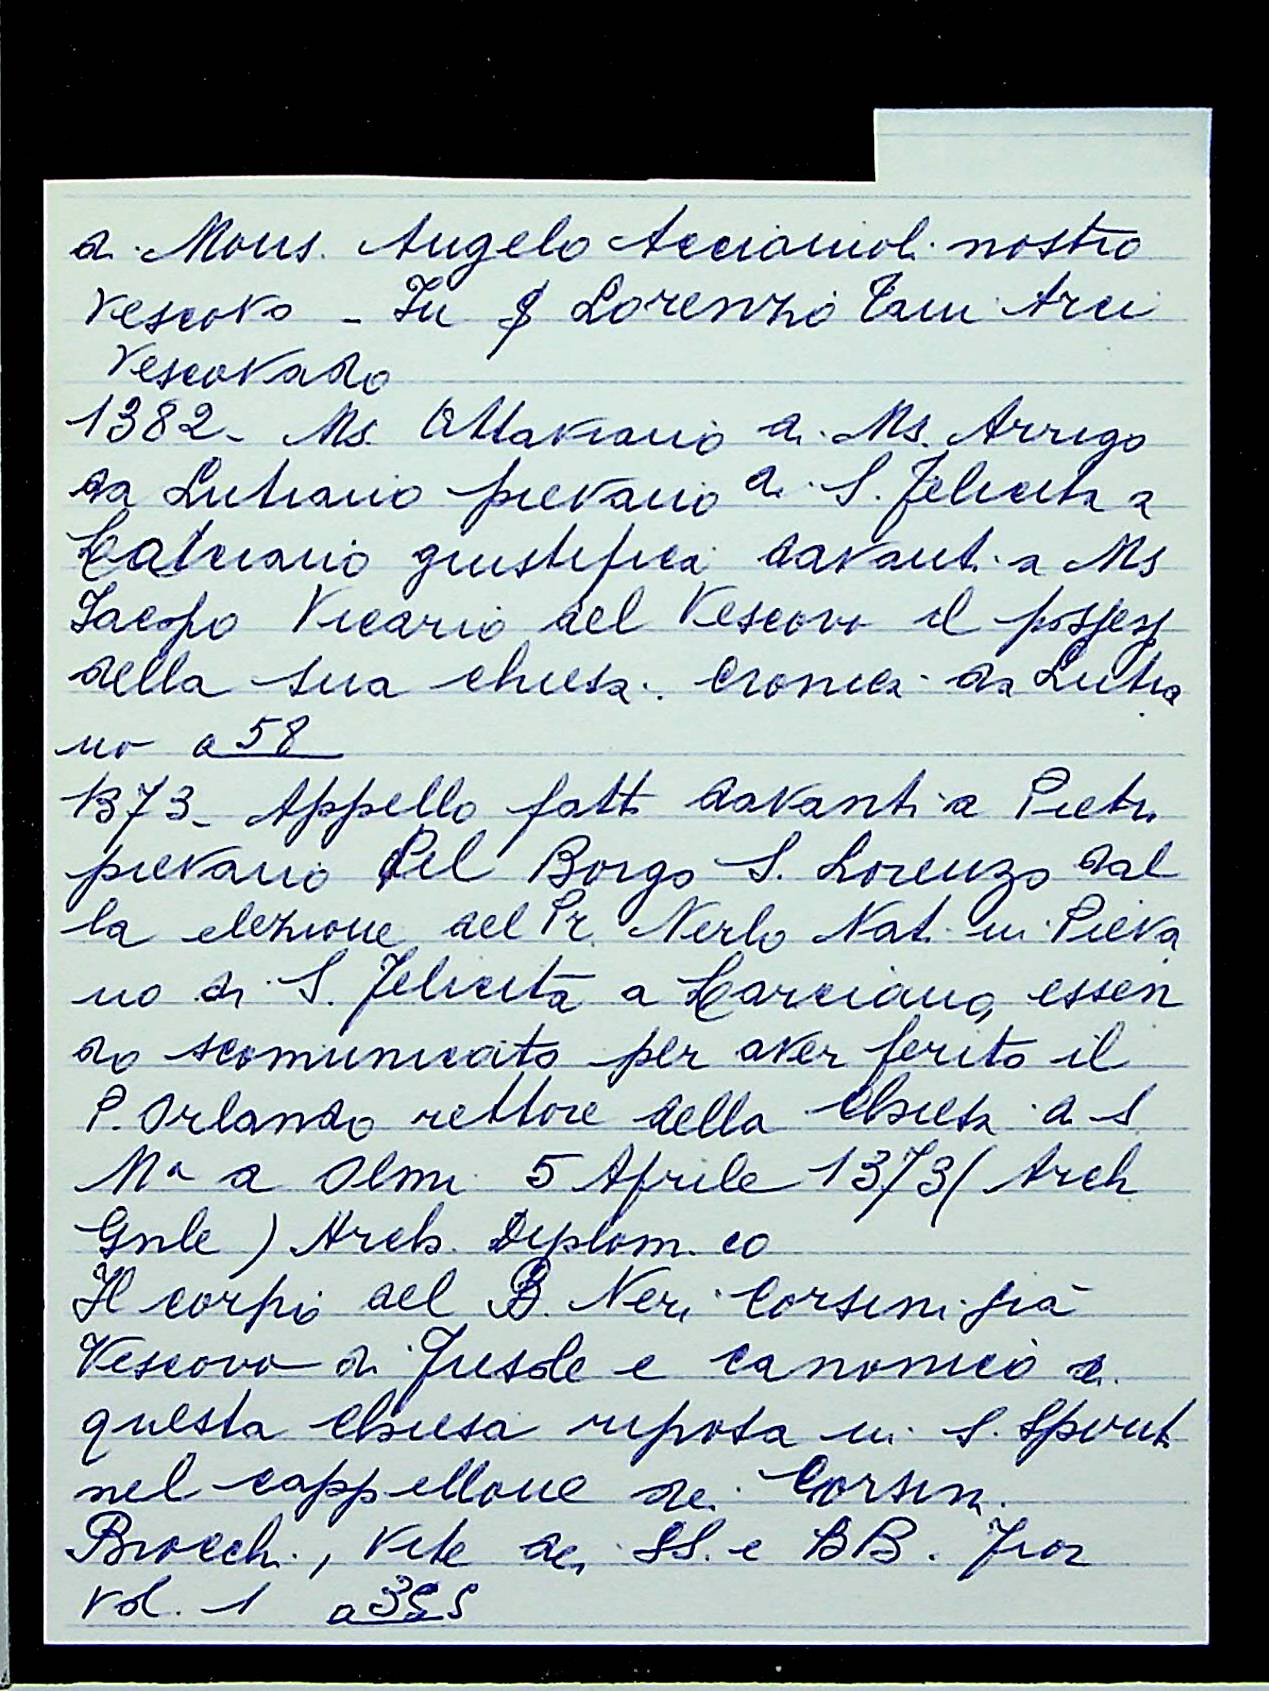 di Mons. Angelo Acciaiuoli nostro
Vescovo - In S Lorenzo Arci
Vescovado
1382 - Ms. Ottaviano di Ms. Arrigo
da Lutiano pievano di S. Felicita a
Larciano giustifica davanti a Ms
Jacopo Vicario del Vescovo il possess
della sua chiesa. Cronica da Lutia
no a 58
1373 - Appello fatto davanti a Pietro
pievano del Borgo S. Lorenzo dal
la elezione del Pr. Nerlo Nat. in Pieva
no di S. Felicita a Larciano, essen
do scomunicato per aver ferito il
P. Orlando rettore della Chiesa di S
Mª a Olmi 5 Aprile 1373 (Arch
Gnle) Arch. Diplom.co
Il corpo del B. Neri Corsini già
Vescovo di Fiesole e canonico di
questa Chiesa riposa in S. Spirit
nel cappellone dei Corsini.
Brocchi, Vite dei SS. e BB. Fior
Vol. 1 a